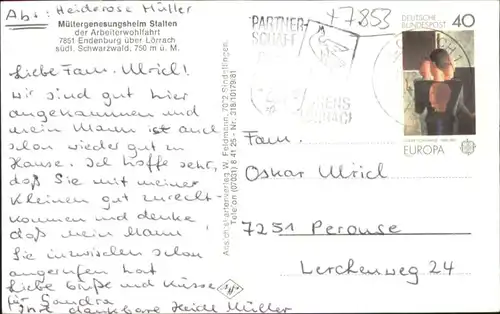 Abs: Heiderose Müller
Müttergenesungsheim Stalten
der Arbeiterwohlfahrt
7851 Endenburg über Lörrach
südl. Schwarzwald, 750 m ü. M.
Liebe Fam. Ulrich!
Wir sind gut hier
angekommen und
mein Mann ist auch
schon wieder gut zu
Hause. Ich hoffe sehr,
daß Sie mit meiner
Kleinen gut zurecht-
kommen und denke
daß mein Mann
Sie inzwischen schon
angerufen hat
Liebe Grüße und Küsse
für Sandra
Ihre dankbare Heidi Müller
Ansichtskartenverlag W. Feldmann, 7032 Sindelfingen,
Telefon (07031) 8 41 25 - Nr. 318/10179/81
PARTNER-
SCHAFT
+7853
DEUTSCHE
BUNDESPOST
40
EUROPA
Fam.
Oskar Ulrich
7251 Perouse
Lerchenweg 24